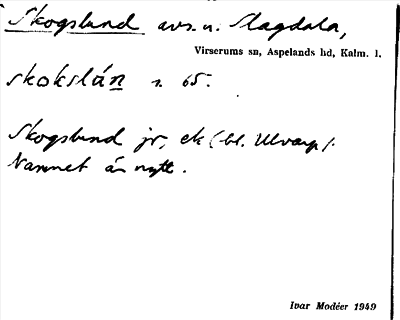 Skogslund avs. u. Slagdala,
Virserums sn, Aspelands hd, Kalm. l.
skokslán s. 65.
Skogslund jr, ek (bl. Ulvarp).
Namnet är nytt.
Ivar Modéer 1949